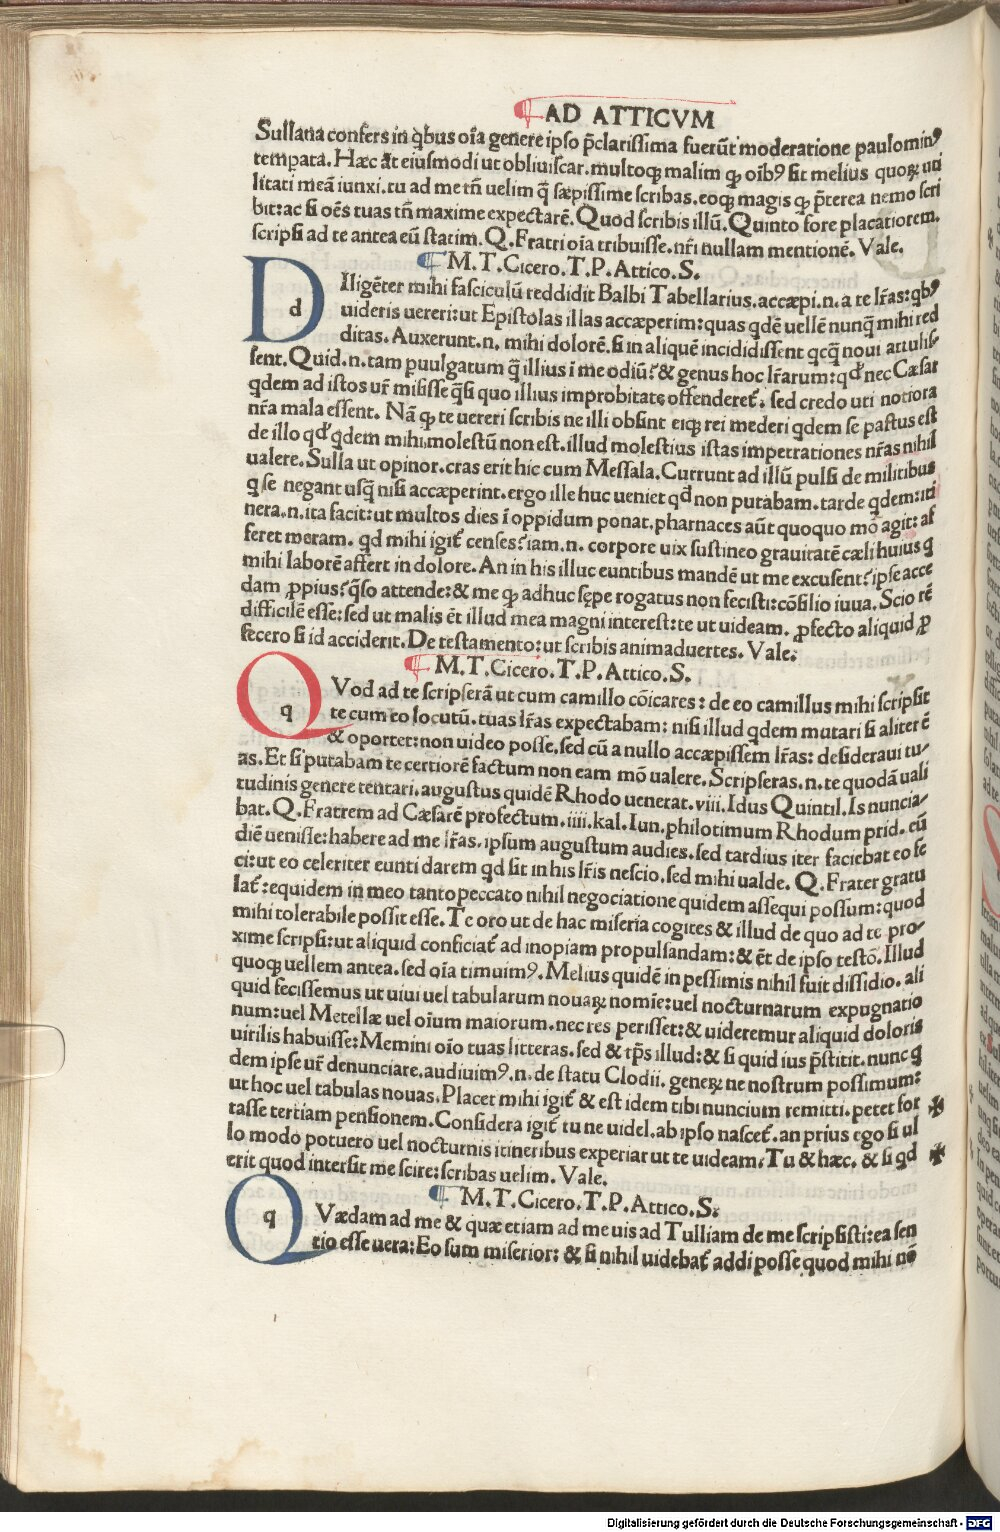 AD ATTICVM
Sullana confers in q̇bus oīa genere ipso p̄clarissima fuerūt moderatione paulominꝰ
temperata. Hæc āt eiusmodi ut obliuiscar. multoqꝫ malim qꝫ oībꝰ sit melius quoꝝ uti
litati meā iunxi. tu ad me tn̄ uelim q̄ sæpissime scribas. eoqꝫ magis qꝫ p̄terea nemo scri
bit: ac si oēs tuas tn̄ maxime expectarē. Quod scribis illū. Quinto fore placatiorem.
scripsi ad te antea eū statim. Q. Fratri oīa tribuisse. nr̄i nullam mentionē. Vale.
M. T. Cicero. T. P. Attico. S.
D d Iligēter mihi fasciculū reddidit Balbi Tabellarius. accæpi. n. a te lr̄as: qbꝰ
uideris uereri: ut Epistolas illas accæperim: quas qdē uellē nunq̄ mihi red
ditas. Auxerunt. n. mihi dolorē. si in aliquē incididissent qcq̄ noui attulis
sent. Quid. n. tam puulgatum q̄ illius i me odiū? & genus hoc lr̄arum: qđ nec Cæsar
qdem ad istos ur̄ misisse q̄si quo illius improbitate offenderet̄. sed credo uti notiora
nr̄a mala essent. Nā qꝫ te uereri scribis ne illi obsint eiqꝫ rei mederi qdem se pastus est
de illo qđ qdem mihi molestū non est. illud molestius istas impetrationes nr̄as nihil
ualere. Sulla ut opinor. cras erit hic cum Messala. Currunt ad illū pulsi de militibus
q se negant usq̄ nisi accæperint. ergo ille huc ueniet qđ non putabam. tarde qdem: iti
nera. n. ita facit: ut multos dies ī oppidum ponat. pharnaces aūt quoquo mō agit: af
feret moram. qd mihi igit̄ censes? iam. n. corpore uix sustineo grauitatē cæli huius q
mihi laborē affert in dolore. An in his illuc euntibus mandē ut me excusent? ipse acce
dam ꝓpius? q̄so attende: & me qꝫ adhuc sępe rogatus non fecisti: cōsilio iuua. Scio rē
difficilē esse: sed ut malis ēt illud mea magni interest: te ut uideam. ꝓfecto aliquid ꝓ
fecero si id acciderit. De testamento: ut scribis animaduertes. Vale.
M. T. Cicero. T. P. Attico. S.
Q q Vod ad te scripserā ut cum camillo cōicares: de eo camillus mihi scripsit
te cum eo locutū. tuas lr̄as expectabam: nisi illud qdem mutari si aliter ē
& oportet: non uideo posse. sed cū a nullo accæpissem lr̄as: desideraui tu
as. Et si putabam te certiorē factum non eam mō ualere. Scripseras. n. te quodā uali
tudinis genere tentari. augustus quidē Rhodo uenerat. viii. Idus Quintil. Is nuncia
bat. Q. Fratrem ad Cæsarē profectum. iiii. kal. Iun. philotimum Rhodum prid. eū
diē uenisse: habere ad me lr̄as. ipsum augustum audies. sed tardius iter faciebat eo fe
ci: ut eo celeriter eunti darem qd sit in his lr̄is nescio. sed mihi ualde. Q. Frater gratu
lat̄: equidem in meo tanto peccato nihil negociatione quidem assequi possum: quod
mihi tolerabile possit esse. Te oro ut de hac miseria cogites & illud de quo ad te pro
xime scripsi: ut aliquid conficiat̄ ad inopiam propulsandam: & ēt de ipso testō. Illud
quoqꝫ uellem antea. sed oīa timuimꝰ. Melius quidē in pessimis nihil fuit dissidio. ali
quid fecissemus ut uiui uel tabularum nouaꝝ nomīe: uel nocturnarum expugnatio
num: uel Metellæ uel oīum maiorum. nec res perisset: & uideremur aliquid doloris
uirilis habuisse: Memini oīo tuas litteras. sed & tp̄s illud: & si quid ius p̄stitit. nunc q
dem ipse ur̄ denunciare. audiuimꝰ. n. de statu Clodii. geneꝝ ne nostrum possimum:
ut hoc uel tabulas nouas. Placet mihi igit̄ & est idem tibi nuncium remitti. petet for
tasse tertiam pensionem. Considera igit̄ tu ne uidel. ab ipso nascet̄. an prius ego si ul
lo modo potuero uel nocturnis itineribus experiar ut te uideam. Tu & hæc. & si qd
erit quod intersit me scire: scribas uelim. Vale.
M. T. Cicero. T. P. Attico. S.
Q q Vædam ad me & quæ etiam ad me uis ad Tulliam de me scripsisti: ea sen
tio esse uera: Eo sum miserior: & si nihil uidebat̄ addi posse quod mihi nō
Digitalisierung gefördert durch die Deutsche Forschungsgemeinschaft - DFG